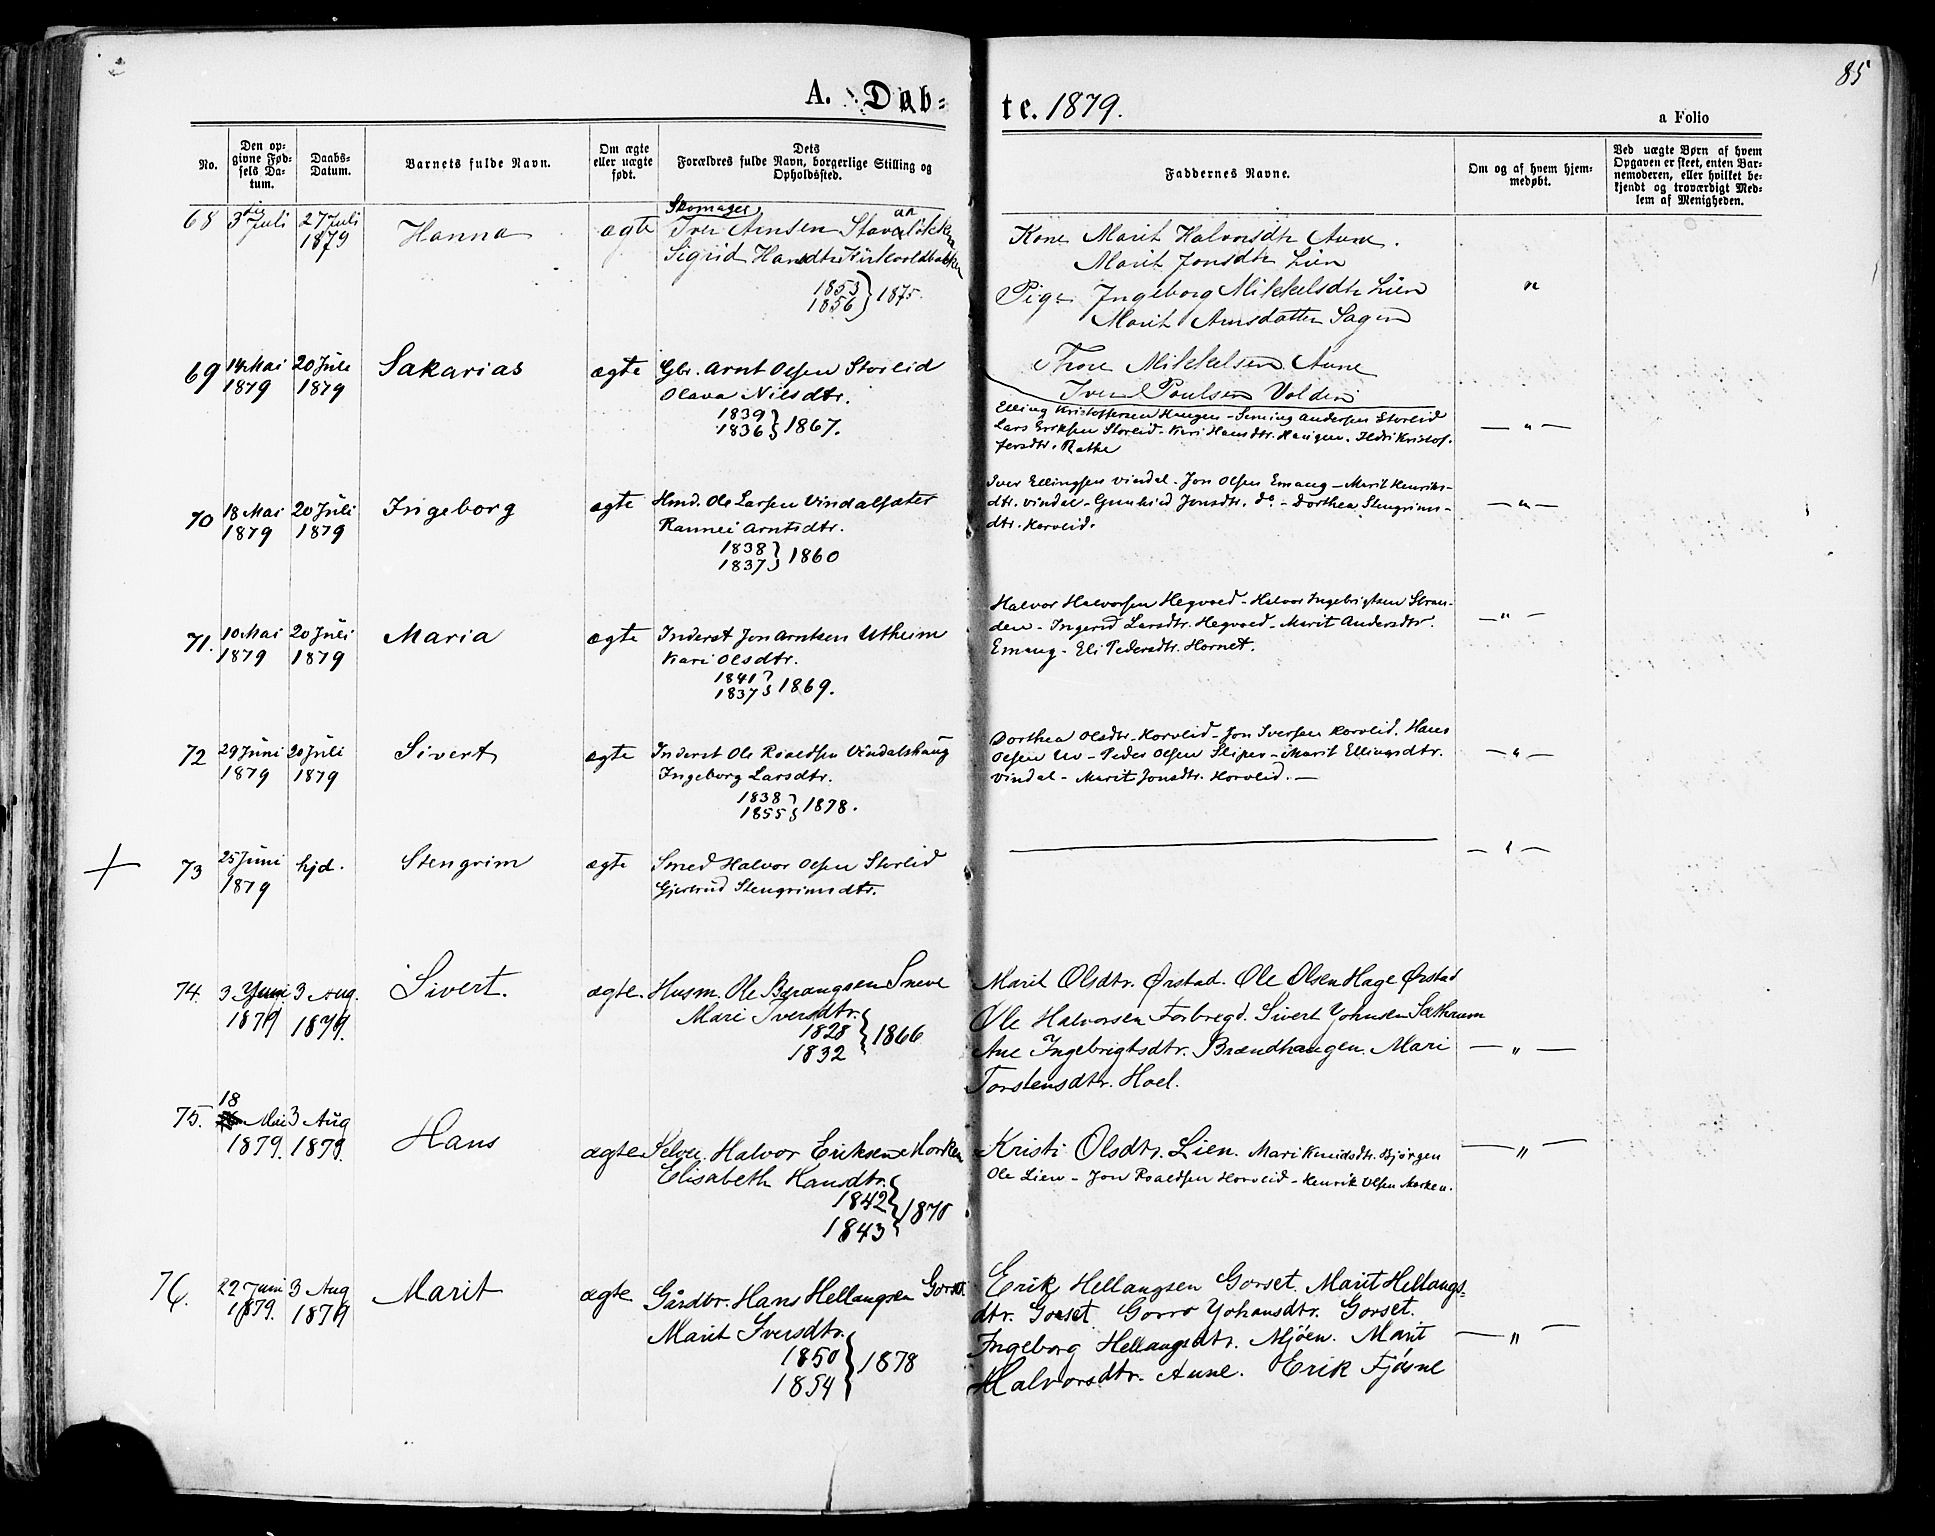 85
A. Døb-
te. 1879.
a Folio
No.
Den op-
givne Fød-
sels Da-
tum.
Daabs-
Datum.
Barnets fulde Navn.
Om ægte
eller uægte
født.
Dets
Forældres fulde Navn, borgerlige Stilling og
Opholdssted.
Faddernes Navne.
Om og af hvem hjem-
medøbt.
Ved uægte Børn af hvem
Opgaven er skeet, enten Bar-
nemoderen, eller hvilket be-
kjendt og troværdigt Med-
lem af Menigheden.
68
3die Juli
27 Juli
1879
Hanna
ægte
Skomager
Iver Arnsen
Sigrid Hansdtr Kirkvoldbakken
1853
1856 } 1875.
Kone Marit Halvorsdtr Aune.
Marit Jonsdtr Lien
Pige Ingeborg Mikkelsdtr Lien
Marit Arnsdatter Sagen
Thore Mikkelsen Aune
Iver Poulsen Volden
"
69
14 Mai
1879
20 Juli
1879
Sakarias
ægte
Gbr. Arnt Olsen Storlid
Olava Nilsdtr.
1839
1836 } 1867.
Elling Kristoffersen Haugen - Seming Andersen Storlid
Lars Eriksen Storlid - Kari Hansdtr. Haugen. Ildri Kristof-
fersdtr. Rathe
— " —
70
18 Mai
1879
20 Juli
1879
Ingeborg
ægte
Hmd. Ole Larsen Vindalsæter
Rannei Arntsdtr.
1838
1837 } 1860
Iver Ellingsen Vindal - Jon Olsen Emaug - Marit Henriks-
dtr. Vindal - Gunhild Jonsdtr. do. - Dorthea Stengrims-
dtr. Horvlid.
— " —
71.
10 Mai
1879
20 Juli
1879
Maria
ægte
Inderst Jon Arntsen Utheim
Kari Olsdtr.
1841
1837 } 1869.
Halvor Halvorsen Hegvold - Halvor Ingebrigtsen Stran-
den - Ingerid Larsdtr. Hegvold - Marit Andersdtr.
Emaug - Eli Pedersdtr. Hornet.
— " —
72
29 Juni
1879
20 Juli
1879
Sivert
ægte
Inderst Ole Roaldsen Vindalshaug
Ingeborg Larsdtr.
1838
1855 } 1878.
Dorthea Olsdtr. Horvlid - Jon Iversen Horvlid. Hans
Olsen Uv - Peder Olsen Sliper - Marit Ellingsdtr.
Vindal - Marit Jonsdtr. Horvlid. —
— " —
73
25 Juni
1879
hjd.
Stengrim
ægte
Smed Halvor Olsen Storlid
Gjertrud Stengrimsdtr.
— " —
74.
3 Juni
1879
3 Aug.
1879.
Sivert.
ægte.
Husm. Ole Bærangsen Sneve
Mari Iversdtr.
1828
1832 } 1866
Marit Olsdtr. Ørstad. Ole Olsen Hage Ørstad
Ole Halvorsen Forbregd. Sivert Johnsen Sætherum
Ane Ingebrigtsdtr. Brændhaugen. Mari
Torstensdtr. Hoel.
— " —
75.
18
Mai
1879.
3 Aug
1879.
Hans
ægte
Selve. Halvor Eriksen Morken
Elisabeth Hansdtr.
1842
1843 } 1870
Kristi Olsdtr. Lien. Mari Knudsdtr. Bjørgen
Ole Lien - Jon Roaldsen Horvlid - Henrik Olsen Morken.
— " —
76.
22 Juni
1879.
3 Aug
1879
Marit
ægte
Gårdbr. Hans Hellangsen Gorset.
Marit Iversdtr.
1850
1854 } 1878
Erik Hellangsen Gorset. Marit Hellangs-
dtr. Gorset. Gorro Johansdtr. Gorset.
Ingeborg Hellangsdtr. Mjøen. Marit
Halvorsdtr. Aune. Erik Fjøsne
— " —